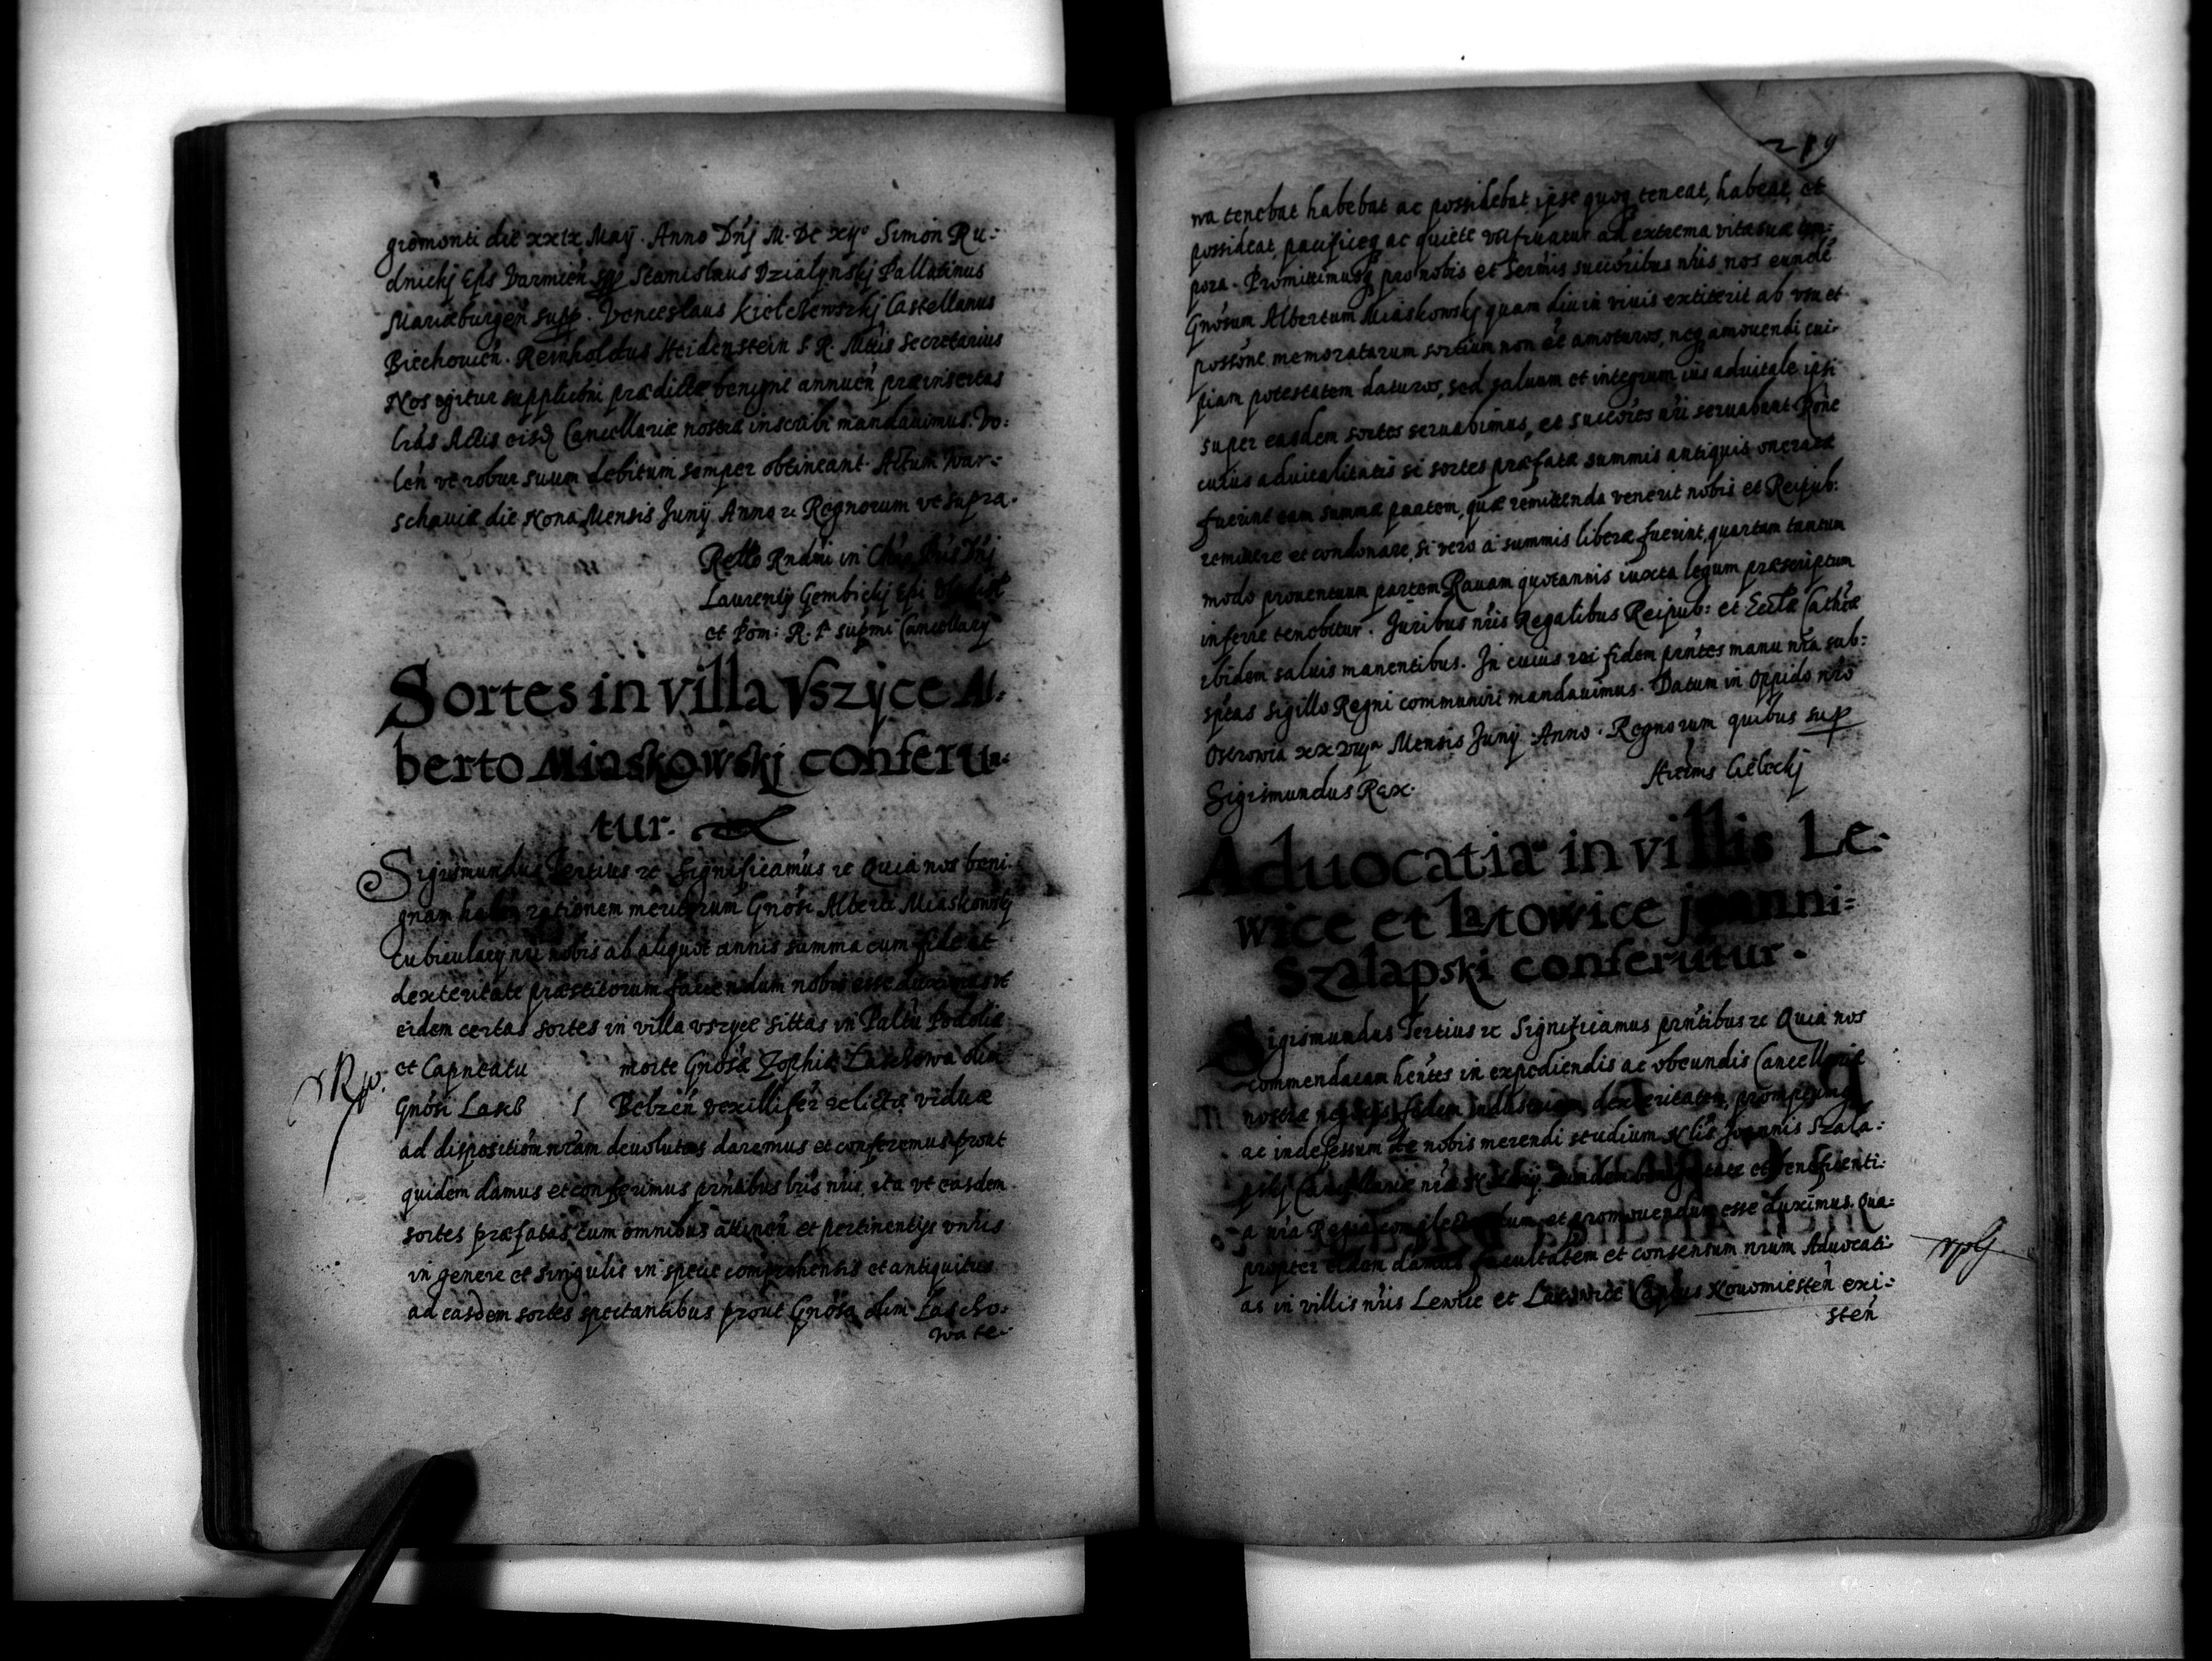 giomonti die xxix Maÿ. Anno Dnj M. DC xijº Simon Ru:
dnickj Eps Varmien̄ spp Stanislaus Dzialynskj Pallatinus
Mariæburgen̄ supp. Venceslaus Kielchewszkj Castellanus
Biechouien̄. Reinholdus Heidenstein S. R. Mtis Secretarius
Nos igitur supplicōni prædictæ benigne annuen̄ præinsertas
lrās Actis eisd Cancellariæ nostræ inscribi mandauimus. Vo:
len̄ vt robur suum debitum semper obtineant. Actum Var:
schauiæ die Nona Mensis Junij Anno zc Regnorum vt supra.
Rello Rndmi in Chro Pris Dnj
Laurentij Gembickj Epi
et Pom: R. P. supmi Cancellarij
Sortes in villa Vszyce Al:
berto Miaskowskj conferun:
tur.
Sigismundus Tertius zc Significamus zc Quia nos beni:
gnam haben̄ rationem meritorum Gnosi Alberti Miaskowskj
Cubicularij nri nobis ab aliquot annis summa cum fide et
dexteritate præstitorum faciendum nobis esse duximus vt
eidem certas sortes in villa vszyce sittas in Paltu Podoliæ
et Capneatu morte Gnosæ Zophiæ Laschowa olim
Gnosi Lasch Belzen̄ vexilliferi relictæ viduæ
ad dispositiōm nrām deuolutas daremus et conferemus prout
quidem damus et conferimus prntibus lris nris, ita vt easdem
sortes præfatas, cum omnibus attinen̄ et pertinentijs vnūis
in genere et singulis in specie comprehensis et antiquitus
ad easdem sortes spectantibus prout Gnosa olim Lascho:
wa te:
219
wa tenebat habebat ac possidebat, ipse quoq teneat, habeat, et
possideat, pacificeq ac quiete vtifruatur ad extrema vitæ suæ tem:
pora. Promittimusq pro nobis et Sermis successoribus nris nos eundē
Gnosum Albertum Miaskowskj quam diu in viuis extiterit ab vsu et
possōne memoratarum sortium non eē amoturos, neq amouendi cui:
piam potestatem daturos, sed saluum et integrum ius aduitale ipsi
super easdem sortes seruabimus, et succōres nri seruabunt Rōne
cuius aduitalitatis si sortes præfatæ summis antiquis oneratæ
fuerint eam summæ partem, quæ remittenda venerit nobis et Reipub:
remittere et condonare, si vero a summis liberæ fuerint, quartam tantum
modo prouentuum partem Rauam quotannis iuxta legum præscriptum
inferre tenebitur. Juribus nris Regalibus Reipub: et Ecclæ Cathcæ
ibidem saluis manentibus. In cuius rei fidem prntes manu nra sub:
sptas sigillo Regni communiri mandauimus. Datum in Oppido nro
Ostrowia xxviijª Mensis Junij Anno. Regnorum quibus sup
Sigismundus Rex.
Aduocatia in villis Le:
wice et Latowice joanni:
Szalapski conferutur.
Sigismundus Tertius zc Significamus prntibus zc Quia nos
commendatam hentes in expediendis ac obeundis Cancellariæ
nostræ negotijs fidem industriam, dexteritatem, promptumq
ac indefessum de nobis merendi studium Nlis Joannis Szala:
pskj Cancellariæ nræ Notarij, eundem et beneficenti:
a nra Regia et promouendum esse duximus. Qua:
propter eidem damus facultatem et consensum nrum Aduocati:
as in villis nris Lewice et Latowice Captus Nouomiesten̄ exi:
sten̄